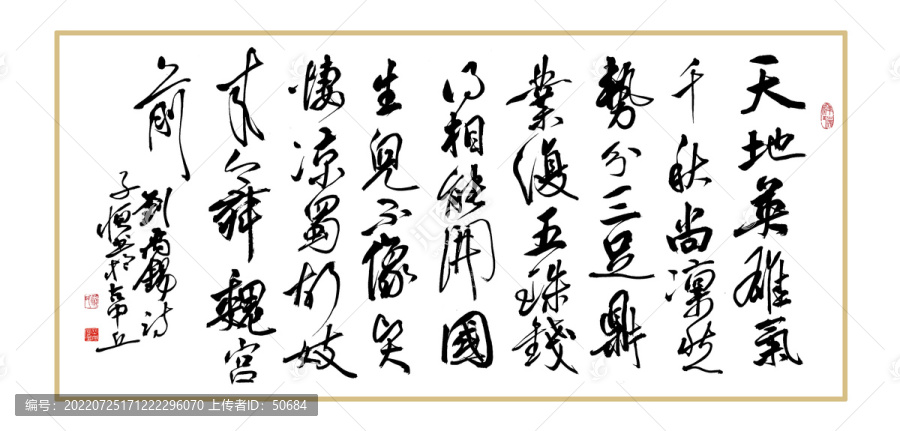 天地英雄氣
千秋尚凛然
勢分三足鼎
業復五銖錢
得相能開國
生兒不像賢
悽凉蜀故妓
來舞魏宮
前
劉禹錫詩
子恒書於
编号:20220725171222296070 上传者ID:50684